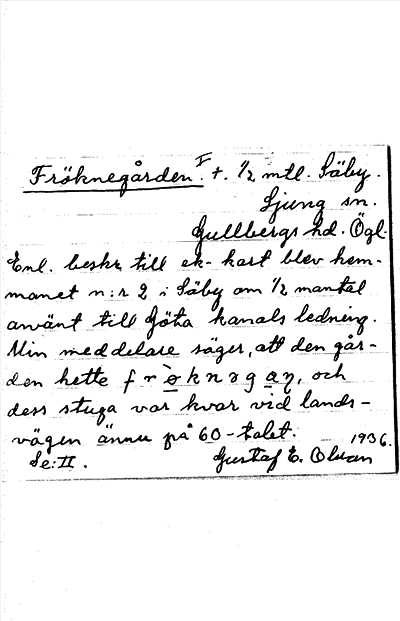 Fröknegården. I †. 1/2 mtl. Säby.
Ljung sn.
Gullbergs hd. Ögl.
Enl. beskr. till ek. kart blev hem-
manet n:r 2 i Säby om 1/2 mantal
använt till Göta kanals ledning.
Min meddelare säger, att den går-
den hette frø̀knəgaŋ, och
dess stuga var kvar vid lands-
vägen ännu på 60-talet.
1936.
Se: II. Gustaf E. Olsson